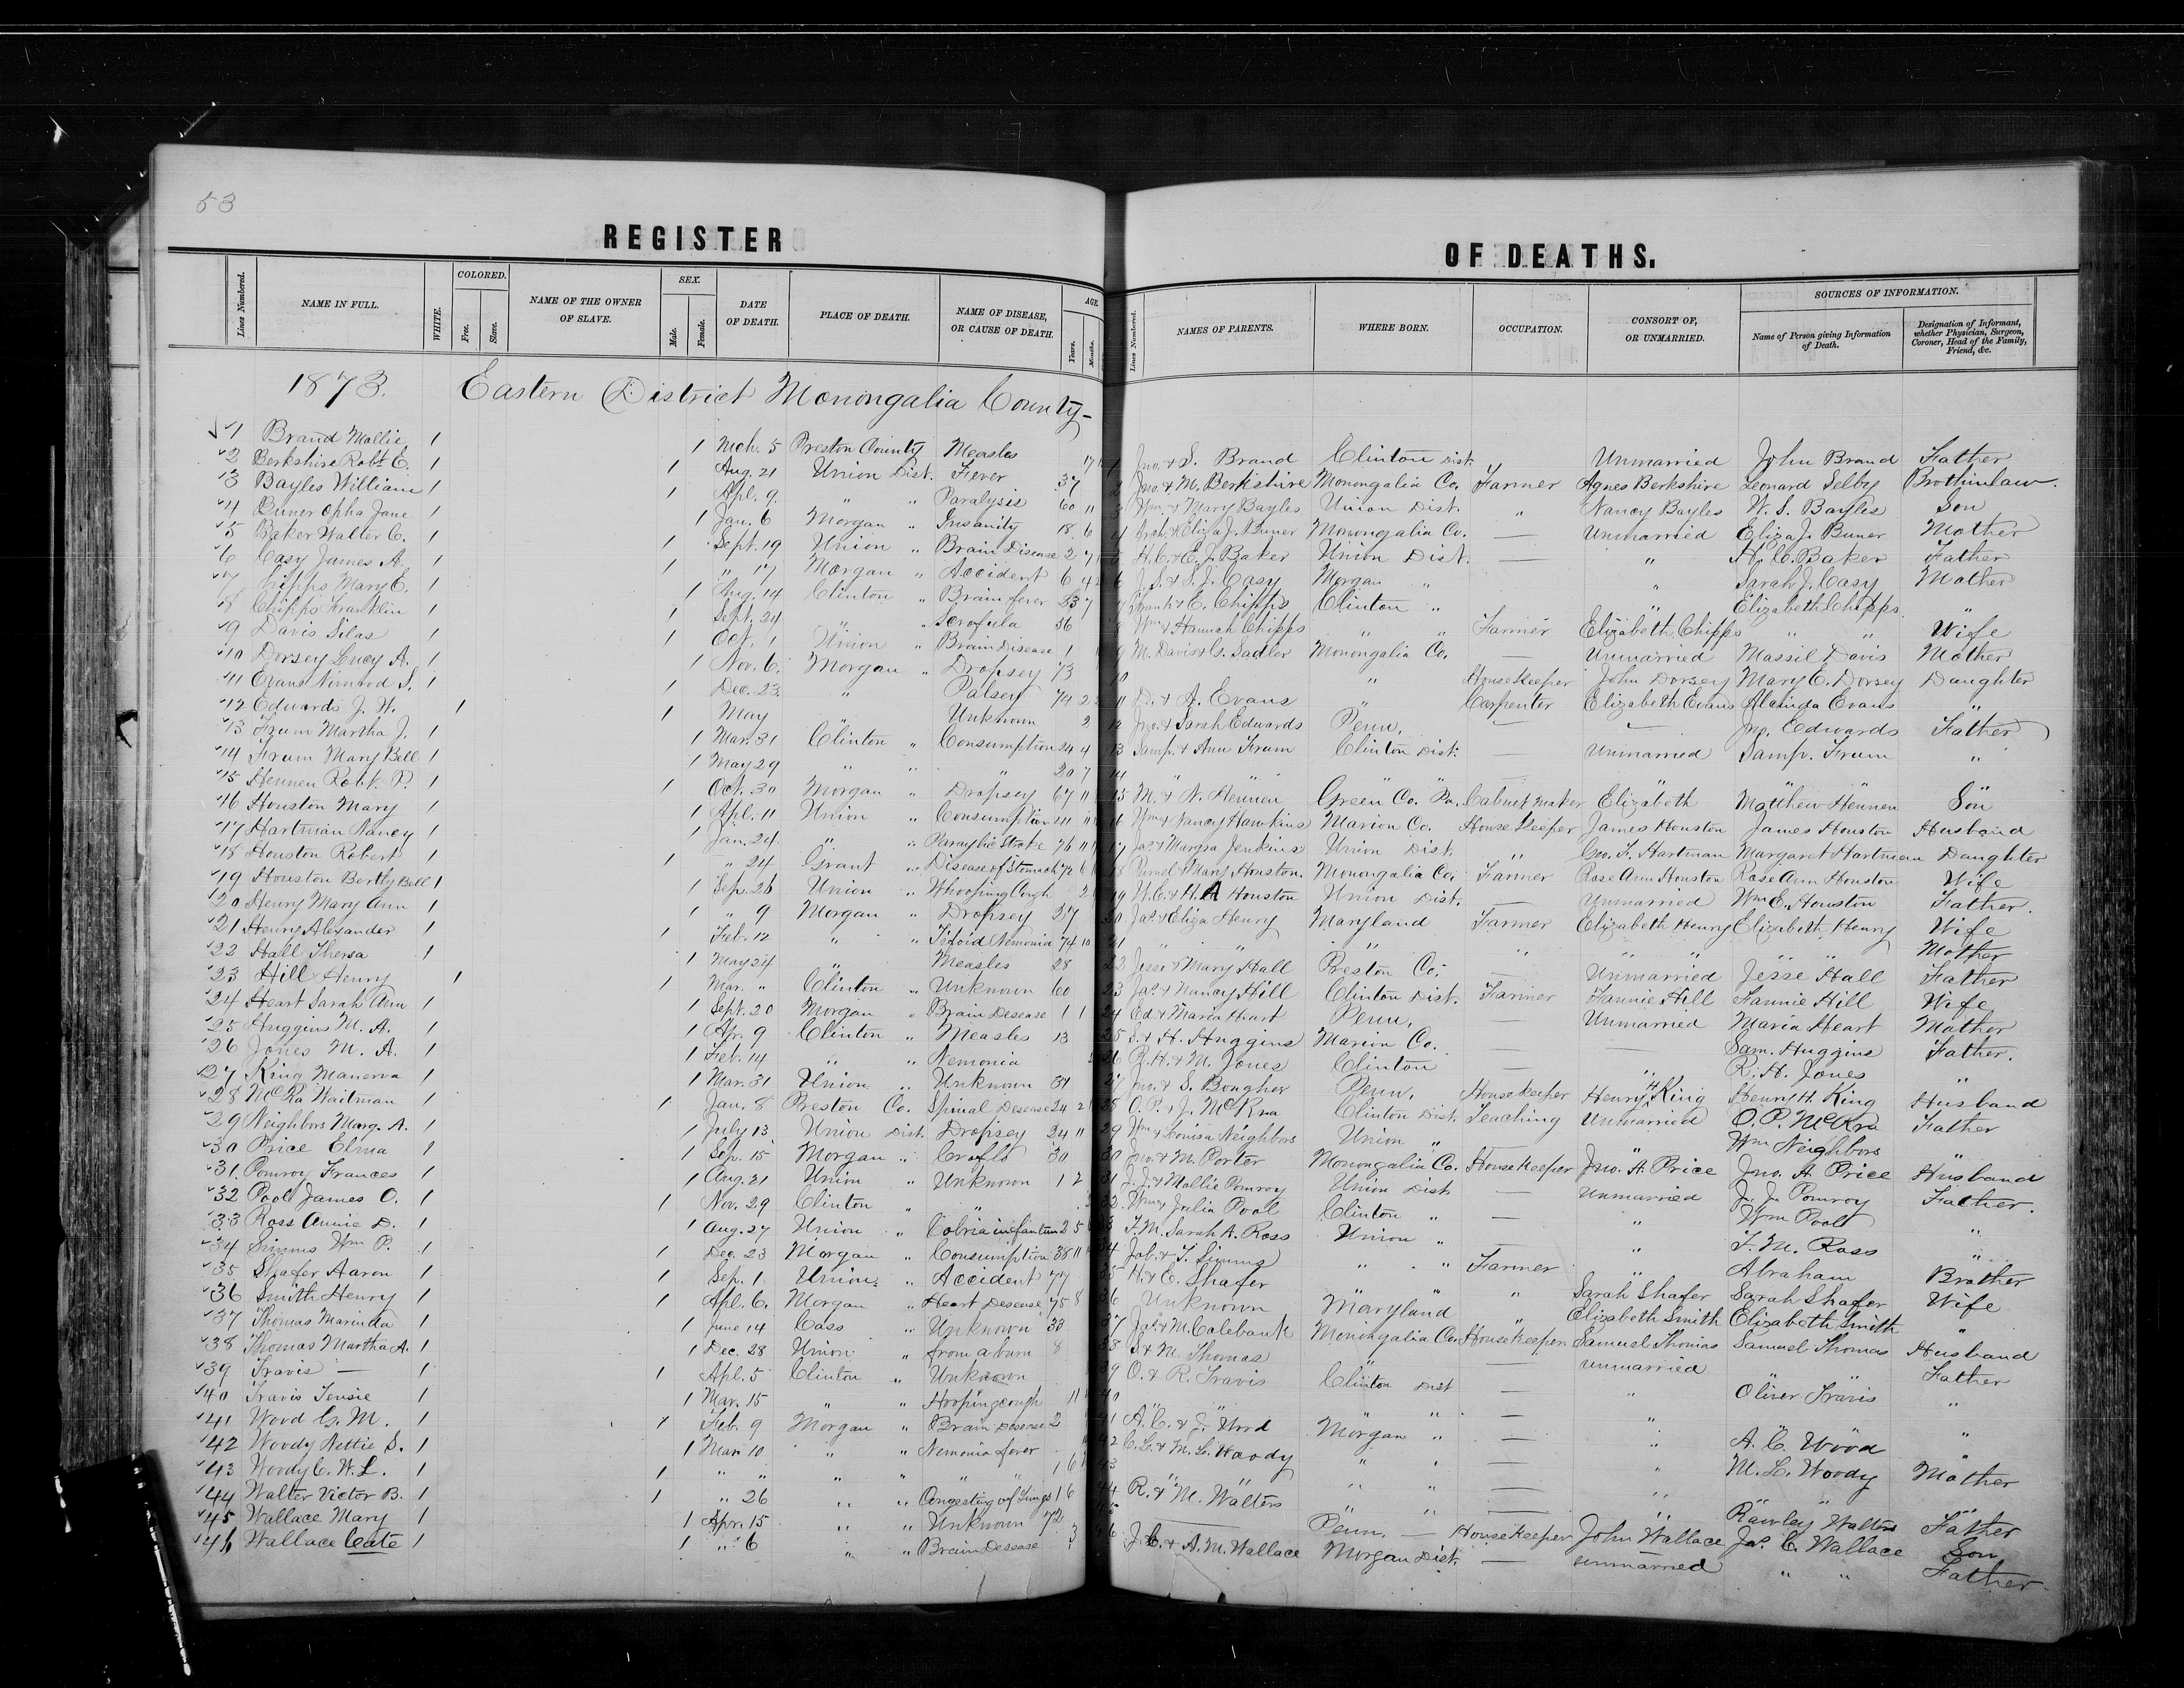 53
REGISTER OF DEATHS.
Lines Numbered. NAME IN FULL. WHITE. COLORED. Free. Slave. NAME OF THE OWNER OF SLAVE. SEX. Male. Female. DATE OF DEATH. PLACE OF DEATH. NAME OF DISEASE, OR CAUSE OF DEATH. AGE. Years. Months. Lines Numbered. NAMES OF PARENTS. WHERE BORN. OCCUPATION. CONSORT OF, OR UNMARRIED. SOURCES OF INFORMATION. Name of Person giving Information of Death. Designation of Informant, whether Physician, Surgeon, Coroner, Head of the Family, Friend, &c.
1873. Eastern District Monongalia County-
1 Brand Mollie 1 1 Mch. 5 Preston County Measles 17 1 Jno. & S. Brand Clinton Dist. Unmarried John Brand Father
2 Berkshire Robt. E. 1 1 Aug. 21 Union Dist. Fever 37 2 Jno. & M. Berkshire Monongalia Co. Farmer Agnes Berkshire Leonard Selby Brothinlaw.
3 Bayles William 1 1 Apl. 9 " " Paralysis 60 11 3 Wm. & Mary Bayles Union Dist. " Nancy Bayles W. S. Bayles Son
4 Buner Opha Jane 1 1 Jan. 6 Morgan " Insanity 18 6 4 & Eliza J. Buner Monongalia Co. — Unmarried Eliza J. Buner Mother
5 Baker Walter C. 1 1 Sept. 19 Union " Brain Disease 2 7 5 H. C. & E. J. Baker Union Dist. — " H. C. Baker Father
6 Casy James A. 1 1 " 17 Morgan " Accident 6 4 6 J. S. & S. J. Casy Morgan " " Sarah J. Casy Mother
7 Chipps Mary E. 1 1 Aug. 14 Clinton " Brain fever 23 7 7 Frank & E. Chipps Clinton " " Elizabeth Chipps "
8 Chipps Franklin 1 1 Sept. 24 " " Scrofula 56 8 Wm. & Hannah Chipps " " Farmer Elizabeth Chipps " " Wife
9 Davis Silas 1 1 Oct. 1 Union " Brain Disease 1 9 M. Davis & C. Sadler Monongalia Co. — Unmarried Massil Davis Mother
10 Dorsey Lucy A. 1 1 Nov. 6 Morgan " Dropsey 73 10 " HouseKeeper John Dorsey Mary C. Dorsey Daughter
11 Evans Nimrod S. 1 1 Dec. 23 " Palsey 74 2 11 D. & A. Evans " Carpenter Elizabeth Evans Alcinda Evans "
12 Edwards J. H. 1 1 May " Unknown 2 12 Jno. & Sarah Edwards Penn. — — Jno. Edwards Father
13 Frum Martha J. 1 1 Mar. 31 Clinton " Consumption 24 4 13 Samp. & Ann Frum Clinton Dist. — Unmarried Samp. Frum "
14 Frum Mary Bell 1 1 May 29 " " " 20 7 14 " " " " — " " "
15 Hennen Robt. P. 1 1 Oct. 30 Morgan " Dropsey 67 11 15 M. & N. Hennen Green Co. Pa. Cabinet Maker Elizabeth Matthew Hennen Son
16 Houston Mary 1 1 Apl. 11 Union " Consumption 41 11 16 Wm. & Nancy Hawkins Marion Co. HouseKeeper James Houston James Houston Husband
17 Hartman Nancy 1 1 Jan. 24 " " Paraylic Stroke 76 11 17 Jas. & Margra Jenkins Union Dist. " Geo. F. Hartman Margaret Hartman Daughter
18 Houston Robert 1 1 " 24 Grant " Disease of Stomach 72 6 18 Purnel & Mary Houston Monongalia Co. Farmer Rose Ann Houston Rose Ann Houston Wife
19 Houston Berthy Bell 1 1 Sep. 26 Union " Whooping Cough 2 19 W. E. & H. A Houston Union Dist. — Unmarried Wm. E. Houston Father.
20 Henry Mary Ann 1 1 " 9 Morgan " Dropsey 27 20 Jas. & Eliza Henry Maryland Farmer Elizabeth Henry Elizabeth Henry Wife
21 Henry Alexander 1 1 Feb. 12 " " Tifoid Nemonia 74 10 21 " " " " " " " " Mother
22 Hall Thersa 1 1 May 24 " Measles 28 22 Jesse & Mary Hall Preston Co. — Unmarried Jesse Hall Father
23 Hill Henry 1 1 Mar. " Clinton " Unknown 60 23 Jas. & Nancy Hill Clinton Dist. Farmer Fannie Hill Fannie Hill Wife
24 Heart Sarah Ann 1 1 Sept. 20 Morgan " Brain Desease 1 1 24 Ed. & Maria Heart Penn. — Unmarried Maria Heart Mother
25 Huggins M. A. 1 1 Apr. 9 Clinton " Measles 13 25 S. & H. Huggins Marion Co. — — Sam. Huggins Father.
26 Jones M. A. 1 1 Feb. 14 " " Nemonia 26 R. H. & M. Jones Clinton — " R. H. Jones "
27 King Manerva 1 1 Mar. 31 Union " Unknown 31 27 Jno. & S. Bougher Penn. HouseKeeper Henry H King Henry H. King Husband
28 McRa Waitman 1 1 Jan. 8 Preston Co. Spinal Desease 24 2 28 O. P. & J. McKra Clinton Dist. Teaching Unmarried O. P. McKra Father
29 Neighbors Marg. A. 1 1 July 13 Union Dist. Dropsey 24 11 29 Wm. & Louisa Neighbors Union " " Wm Neighbors "
30 Price Elma 1 1 Sep. 15 Morgan " 30 30 Jno. & M. Porter Monongalia Co. HouseKeeper Jno. H. Price Jno. H. Price Husband
31. Pomroy Frances 1 1 Aug. 21 Union " Unknown 1 2 31 J. J. & Mollie Pomroy Union Dist — Unmarried J. J. Pomroy Father.
32 Pool James O. 1 1 Nov. 29 Clinton " " 32 Wm. & Julia Pool Clinton " — " Wm Pool "
33 Ross Annie D. 1 1 Aug. 27 Union " Colria infantum 2 5 33 T. M. Sarah A. Ross Union " — " T. M. Ross "
34 Simms Wm P. 1 1 Dec. 23 Morgan " Consumption 38 11 34 Jab. & T. Simms " " Farmer " Abraham Brother
35 Shafer Aaron 1 1 Sep. 1 Union " Accident 77 35 H. & E. Shafer " " " Sarah Shafer Sarah Shafer Wife
36 Smith Henry 1 1 Apl. 6 Morgan " Heart Desease 75 8 36 Unknown Maryland " Elizabeth Smith Elizabeth Smith "
37 Thomas Marinda 1 1 June 14 Cass " Unknown 33 37 Jas. & M. Calebank Monongalia Co. HouseKeeper Samuel Thomas Samuel Thomas Husband
38 Thomas Martha A. 1 1 Dec. 28 Union " from a burn 8 38 S. & M. Thomas " unmarried " " Father
39 Travis — 1 1 Apl. 5 Clinton " Unknown 39 O. & R. Travis Clinton Dist — " Oliver Travis "
40 Travis Tensie 1 1 Mar. 15 " " Hooping cough 11 40 " " " " — " " "
41 Wood G. M. 1 1 Feb. 9 Morgan " Brain Desease 2 41 A. C. & J. Wood Morgan " — " A. C. Wood "
42 Woody Nettie S. 1 1 Mar 10 " " Nemonia fever 42 C. L. & M. L. Woody " " — " M. L. Woody Mother
43 Woody C. W. L. 1 1 " " " " " " 1 6 43 " " " " — " " " "
44 Walter Victor B. 1 1 " 26 " " Congestion of Lungs 1 6 44 R. & M. Walters " " — " Rawley Walters Father
45 Wallace Mary 1 1 Apr. 15 " " Unknown 72 45 — Penn. — HouseKeeper John Wallace Jas. C. Wallace Son
46 Wallace Cate 1 1 " 6 " " Brain Desease 3 46 J. C. & A. M. Wallace Morgan Dist. — unmarried " " Father.